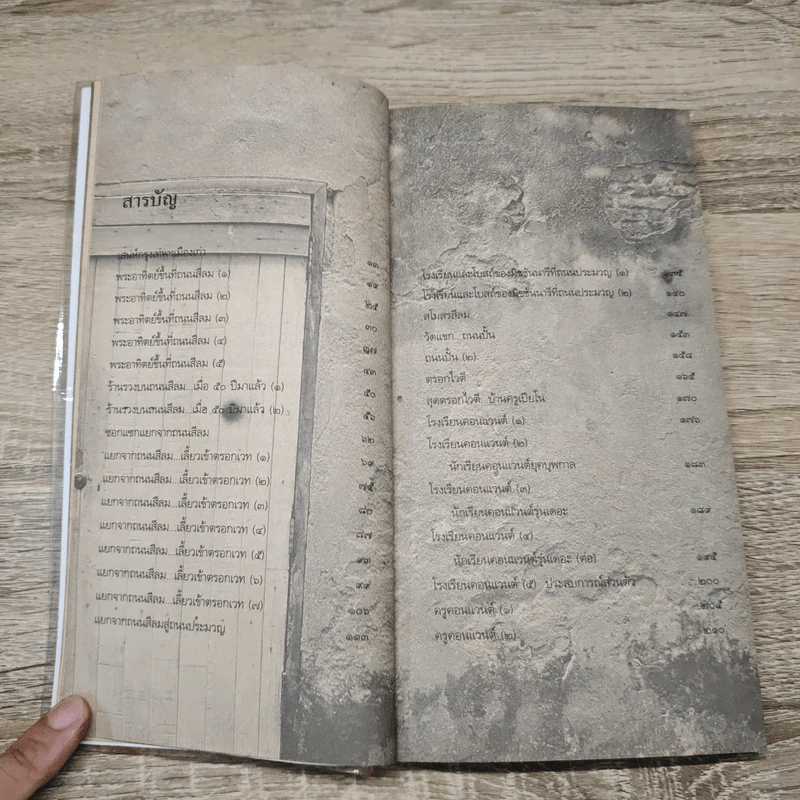 สารบัญ
เสน่ห์กรุงเทพฯเมืองเก่า ๑๓
พระอาทิตย์ขึ้นที่ถนนสีลม (๑) ๑๙
พระอาทิตย์ขึ้นที่ถนนสีลม (๒) ๒๕
พระอาทิตย์ขึ้นที่ถนนสีลม (๓) ๓๐
พระอาทิตย์ขึ้นที่ถนนสีลม (๔) ๓๗
พระอาทิตย์ขึ้นที่ถนนสีลม (๕) ๔๓
ร้านรวงบนถนนสีลม...เมื่อ ๕๐ ปีมาแล้ว (๑) ๕๐
ร้านรวงบนถนนสีลม...เมื่อ ๕๐ ปีมาแล้ว (๒) ๕๖
ซอกแซกแยกจากถนนสีลม ๖๒
แยกจากถนนสีลม...เลี้ยวเข้าตรอกเวท (๑) ๖๙
แยกจากถนนสีลม...เลี้ยวเข้าตรอกเวท (๒) ๗๕
แยกจากถนนสีลม...เลี้ยวเข้าตรอกเวท (๓) ๘๒
แยกจากถนนสีลม...เลี้ยวเข้าตรอกเวท (๔) ๘๗
แยกจากถนนสีลม...เลี้ยวเข้าตรอกเวท (๕) ๙๓
แยกจากถนนสีลม...เลี้ยวเข้าตรอกเวท (๖) ๙๙
แยกจากถนนสีลม...เลี้ยวเข้าตรอกเวท (๗) ๑๐๖
แยกจากถนนสีลมสู่ถนนประมวญ ๑๑๓
โรงเรียนและโบสถ์ของมิชชันนารีที่ถนนประมวญ (๑)
โรงเรียนและโบสถ์ของมิชชันนารีที่ถนนประมวญ (๒) ๑๔๐
สโมสรสีลม ๑๔๗
วัดแขก...ถนนปั้น ๑๕๓
ถนนปั้น (๒) ๑๕๘
ตรอกไวตี ๑๖๕
สุดตรอกไวตี...บ้านครูเปียโน ๑๗๐
โรงเรียนคอนแวนต์ (๑) ๑๗๖
โรงเรียนคอนแวนต์ (๒)
นักเรียนคอนแวนต์ยุคบุพกาล ๑๘๓
โรงเรียนคอนแวนต์ (๓)
นักเรียนคอนแวนต์รุ่นเดอะ ๑๘๙
โรงเรียนคอนแวนต์ (๔)
นักเรียนคอนแวนต์รุ่นเดอะ (ต่อ) ๑๙๕
โรงเรียนคอนแวนต์ (๕) ประสบการณ์ส่วนตัว ๒๐๐
ครูคอนแวนต์ (๑) ๒๐๕
ครูคอนแวนต์ (๒) ๒๑๐